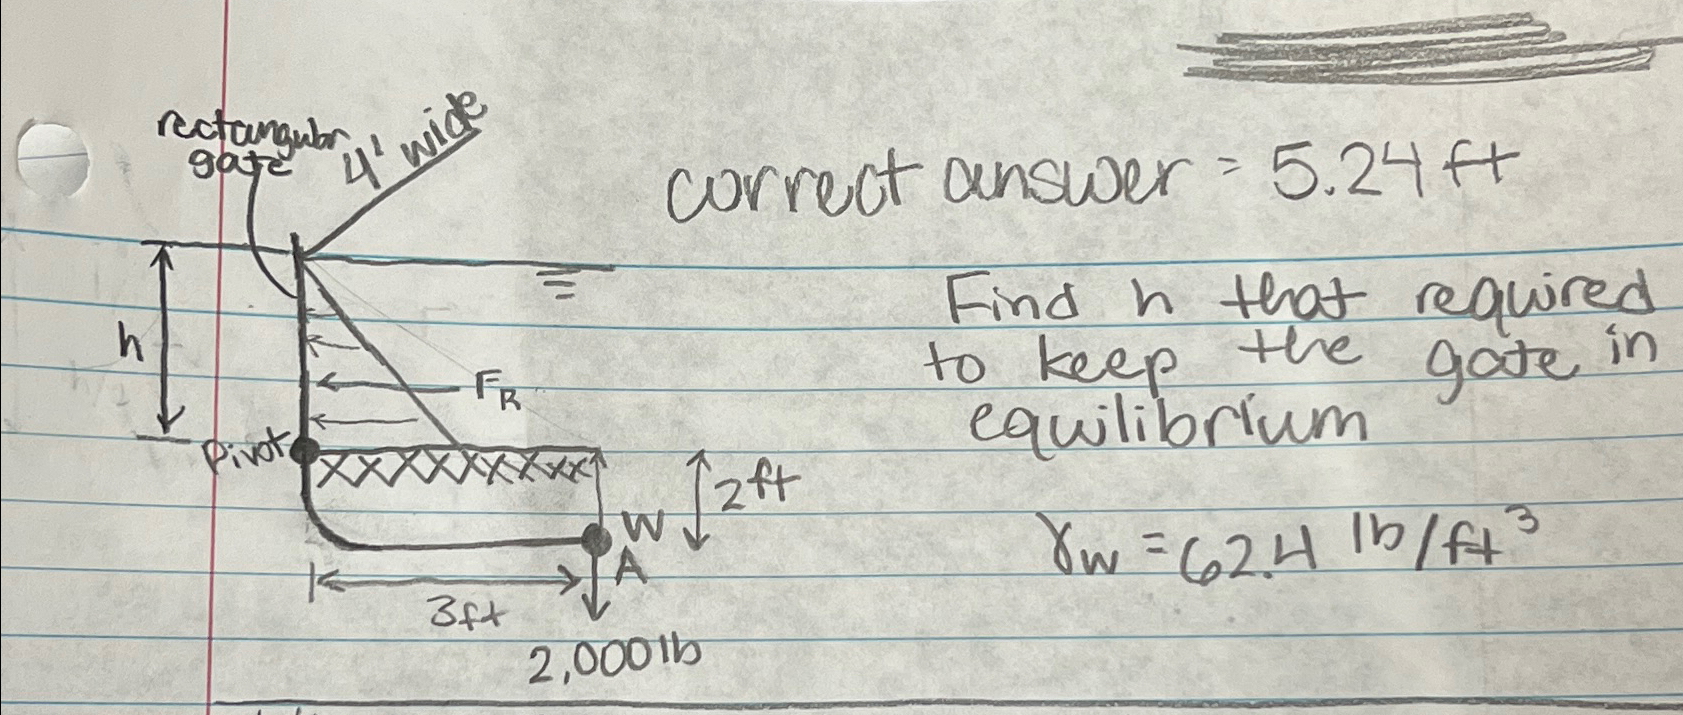 rectangular
gate
4' wide
correct answer = 5.24 ft
h
Find h that required
to keep the gate in
equilibrium
FR
Pivot
2 ft
W
A
γw = 62.4 lb/ft³
3ft
2,000 lb